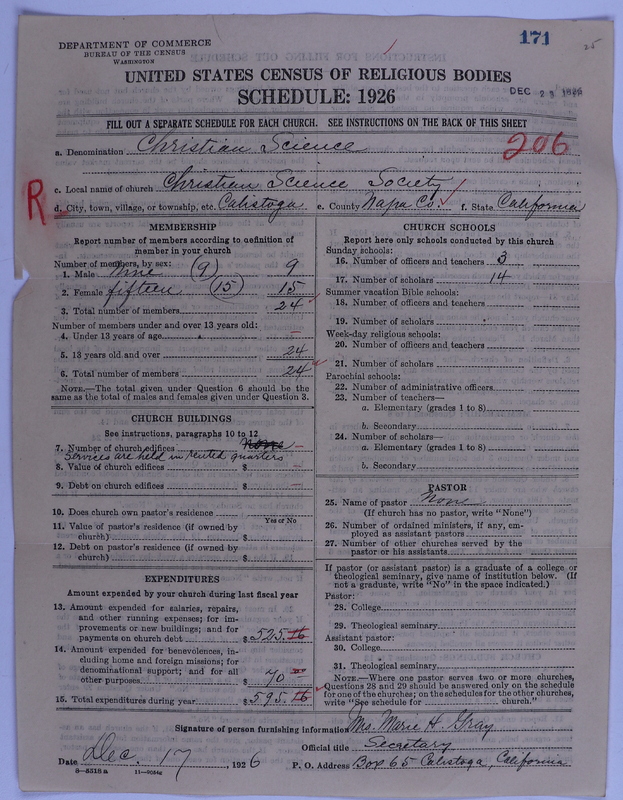 171
25
DEPARTMENT OF COMMERCE
BUREAU OF THE CENSUS
WASHINGTON
UNITED STATES CENSUS OF RELIGIOUS BODIES
SCHEDULE: 1926
DEC 23 1926
FILL OUT A SEPARATE SCHEDULE FOR EACH CHURCH. SEE INSTRUCTIONS ON THE BACK OF THIS SHEET
206
a. Denomination Christian Science
R
c. Local name of church Christian Science Society
d. City, town, village, or township, etc. Calistoga e. County Napa Co. f. State California
MEMBERSHIP
Report number of members according to definition of
member in your church
Number of members, by sex:
1. Male Nine (9) 9
2. Female fifteen (15) 15
3. Total number of members 24
Number of members under and over 13 years old:
4. Under 13 years of age –
5. 13 years old and over 24
6. Total number of members 24
NOTE.—The total given under Question 6 should be the
same as the total of males and females given under Question 3.
CHURCH BUILDINGS
See instructions, paragraphs 10 to 12
7. Number of church edifices None –
Services are held in rented quarters
8. Value of church edifices $ –
9. Debt on church edifices $ –
10. Does church own pastor's residence?
Yes or No
11. Value of pastor's residence (if owned by
church) $
12. Debt on pastor's residence (if owned by
church) $
EXPENDITURES
Amount expended by your church during last fiscal year
13. Amount expended for salaries, repairs,
and other running expenses; for im-
provements or new buildings; and for
payments on church debt $ 525.16
14. Amount expended for benevolences, in-
cluding home and foreign missions; for
denominational support; and for all
other purposes $ 70 00
15. Total expenditures during year $ 595.16
CHURCH SCHOOLS
Report here only schools conducted by this church
Sunday schools:
16. Number of officers and teachers 3
17. Number of scholars 14
Summer vacation Bible schools:
18. Number of officers and teachers
19. Number of scholars
Week-day religious schools:
20. Number of officers and teachers
21. Number of scholars
Parochial schools:
22. Number of administrative officers
23. Number of teachers—
a. Elementary (grades 1 to 8)
b. Secondary
24. Number of scholars—
a. Elementary (grades 1 to 8)
b. Secondary
PASTOR
25. Name of pastor None
(If church has no pastor, write "None")
26. Number of ordained ministers, if any, em-
ployed as assistant pastors
27. Number of other churches served by the
pastor or his assistants
If pastor (or assistant pastor) is a graduate of a college or
theological seminary, give name of institution below. (If
not a graduate, write "No" in the space indicated.)
Pastor:
28. College
29. Theological seminary
Assistant pastor:
30. College
31. Theological seminary
NOTE.—Where one pastor serves two or more churches,
Questions 28 and 29 should be answered only on the schedule
for one of the churches; on the schedules for the other churches,
write "See schedule for church."
Signature of person furnishing information Mrs. Marie H. Gray
Official title Secretary
Date Dec. 17, 1926 P. O. Address Box 65 Calistoga, California
8—5518 a 11—9054g